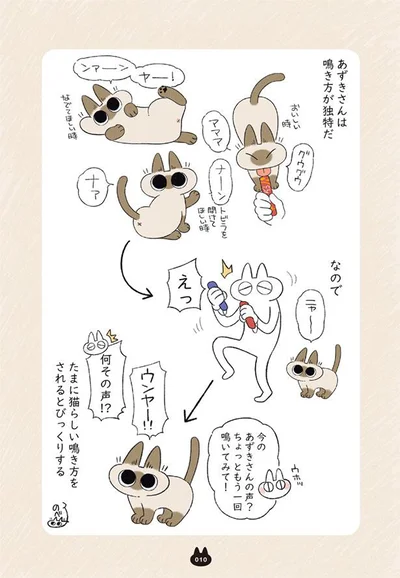 あずきさんは
鳴き方が独特だ
おいしい
時
ママママ
グウグウ
ンアーーン
ヤー!
なでてほしい時
ナーーン
トビラを
開けて
ほしい時
ナァ
なので
ニャ〜
えっ
今の
あずきさんの声?
ちょっともう一回
鳴いてみて!
ウホッ
ウンャー!!
何その声!?
たまに猫らしい鳴き方を
されるとびっくりする
010